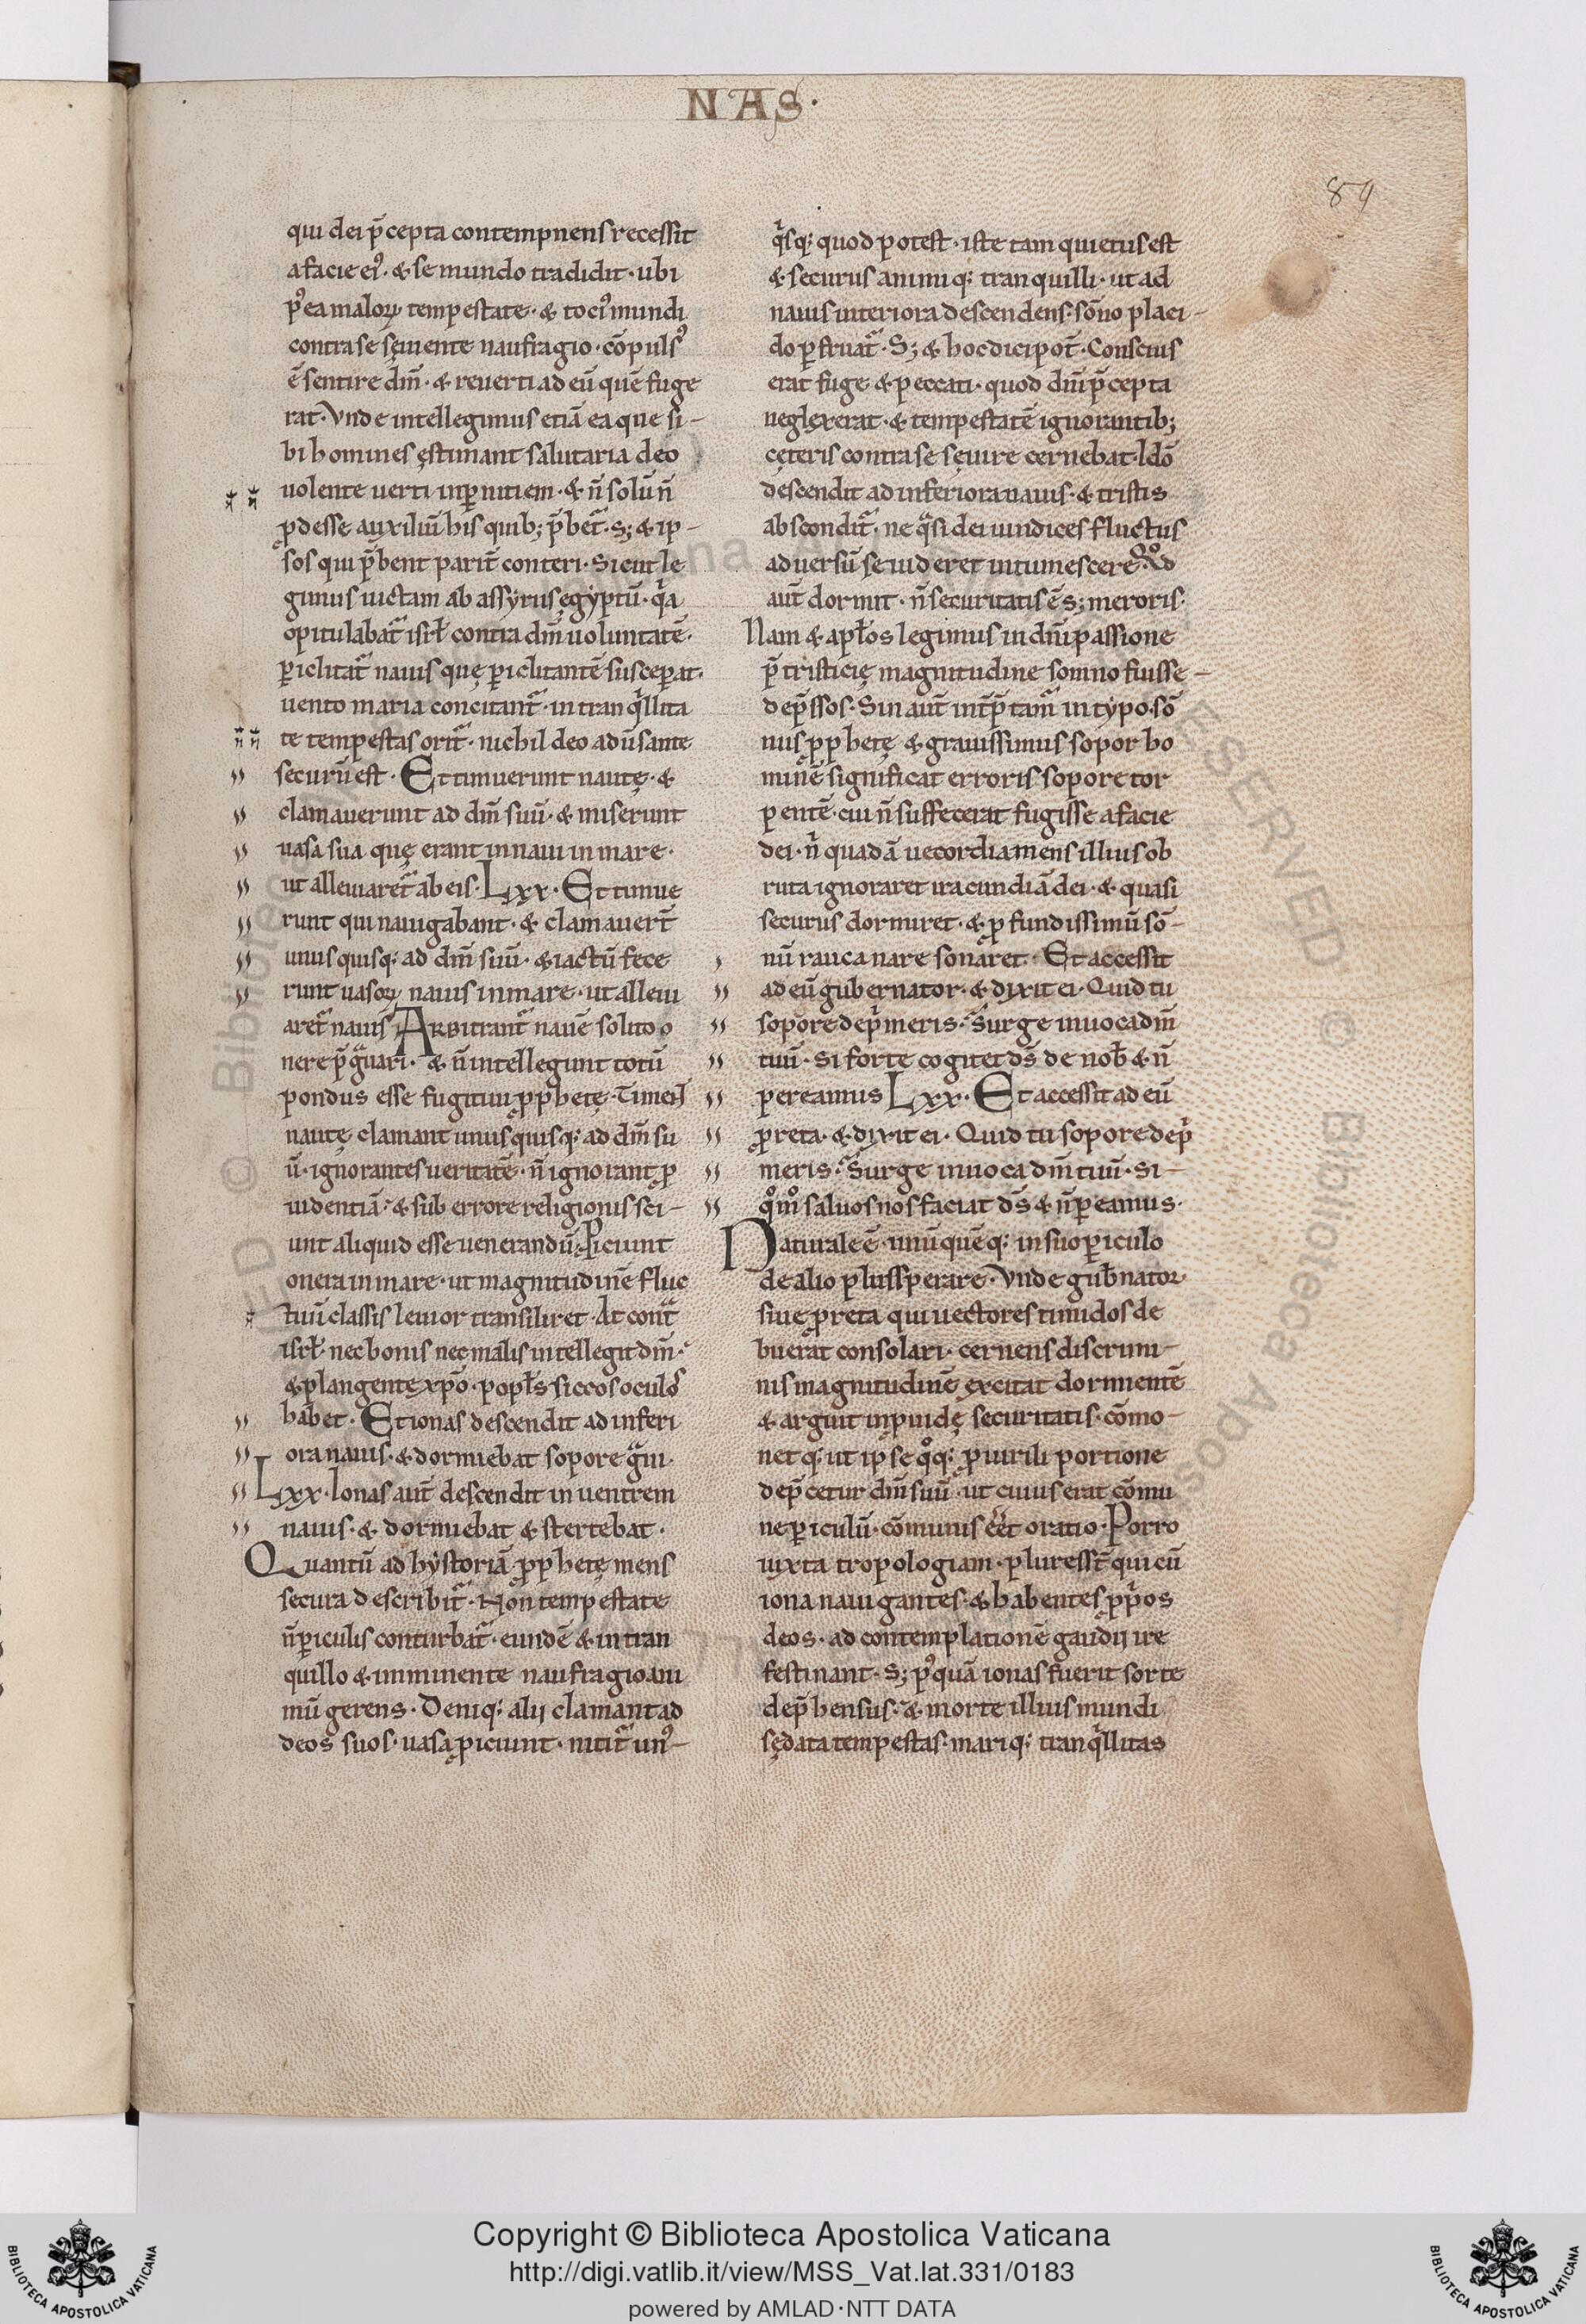 NAS·
89
qui dei p̄cepta contempnens recessit
a facie ei᷒· & se mundo tradidit· ubi
p᷒ ea maloꝝ tempestate· & toci᷒ mundi
contra se sęuiente naufragio· cōpuls᷒
ē sentire dm̄· & reuerti ad eū quē fuge
rat· Vnde intellegimus etiā ea que si-
bi homines ęstimant salutaria deo
uolente uerti in ꝑnitiem· & n̄ solū n̄
ꝓdesse auxiliū his quib; p̄bet᷑· S; & ip-
sos qui p̄bent parit̄ conteri· Sicut le
gimus uictam ab assẏriis ęgẏptū· qͥa
opitulabat᷑ isrł contra dm̄ uoluntatē·
ꝑiclitat᷑ nauis quę ꝑiclitantē susceꝑat·
uento maria concitant᷑· in tranqͥllita
te tempestas orit᷑· nichil deo aduˉsante
securū est· Et timuerunt nautę· &
clamauerunt ad dm̄ suū· & miserunt
uasa sua quę erant in naui in mare·
ut alleuiaret᷑ ab eis· Lxx· Et timue
runt qui nauigabant· & clamauert̄
unusquisq; ad dm̄ suū· & iactū fece
runt uasoꝝ nauis in mare· ut alleui
aret᷑ nauis· ARBitrant᷑ nauē solito o
nere p̄gͣuari· & n̄ intellegunt totū
pondus esse fugitiui ꝓphetę· Timent
nautę clamant unusquisq; ad dm̄ su
ū· ignorantes ueritatē· n̄ ignorant ꝓ
uidentiā· & sub errore religionis sci-
unt aliquid esse uenerandū· Piciunt
onera in mare· ut magnitudinē fluc
tuū classis leuior transiliret· At contͣ
isrł· nec bonis nec malis intellegit dm̄·
& plangente xp̄o· popłs siccos oculos
habet· Et ionas descendit ad inferi
ora nauis· & dormiebat sopore gͣui·
Lxx· Ionas aut̄ descendit in uentrem
nauis· & dormiebat & stertebat·
Quantū ad hẏstoriā ꝓphetę mens
secura describit᷑· Non tempestate
n̄ ꝑiculis conturbat᷑· eundē & in tran
quillo & imminente naufragio ani
mū gerens· Deniq; alij clamant ad
deos suos· uasa ꝓiciunt· nitit᷑ un᷒-
qͥsq; quod potest· iste tam quietus est
& securus animiq; tranquilli· ut ad
nauis interiora descendens· sōno placi-
do ꝑfruat᷑· S; & hoc dici pot̄· Conscius
erat fuge & peccati· quod dnī p̄cepta
neglexerat· & tempestatē ignorantib;
cęteris contra se sęuire cernebat· Idō
descendit ad inferiora nauis· & tristis
abscondit᷑· ne qͣsi dei uindices fluctus
aduersū se uideret intumescere· Qͦd
aut̄ dormit· n̄ securitatis ē s; meroris·
Nam & apłos legimus in dnī passione
p̄ tristicię magnitudine somno fuisse-
dep̄ssos· Sin aut̄ int̄p̄tam᷑ in tẏpo· sō
nus ꝓphetę & grauissimus sopor ho
minē significat erroris sopore tor
pentē· cui n̄ suffecerat fugisse a facie
dei· nͥ quadā uecordia mens illius ob
ruta ignoraret iracundiā dei· & quasi
securus dormiret· & ꝓfundissimū sō-
nū rauca nare sonaret· Et accessit
ad eū gubernator· & dixit ei· Quid tu
sopore depͥmeris· Surge inuoca dm̄
tuū· si forte cogitet ds̄ de nob̄ & n̄
pereamus Lxx· Et accessit ad eū
ꝓreta· & dixit ei· Quid tu sopore depͥ
meris· Surge inuoca dm̄ tuū· si-
qͦmͦ saluos nos faciat ds̄ & n̄ ꝑeamus·
Naturale ē· unūquēq; in suo ꝑiculo
de alio plus sperare· Vnde gub̄nator
siue ꝓreta qui uectores timidos de
buerat consolari· cernens discrimi-
nis magnitudinē excitat dormientē
& arguit inꝓuidę securitatis· cōmo-
net q; ut ipse qͦq; ꝓ uirili portione
dep̄cetur dm̄ suū· ut cuius erat cōmu
ne ꝑiculū· cōmunis eēt oratio· Porro
iuxta tropologiam· plures st̄ qui cū
iona nauigantes· & habentes ꝓpͥos
deos· ad contemplationē gaudij ire
festinant· S; p᷒quā ionas fuerit sorte
dep̄hensus· & morte illius mundi
sędata tempestas· mariq; tranqͥllitas
Copyright © Biblioteca Apostolica Vaticana
http://digi.vatlib.it/view/MSS_Vat.lat.331/0183
powered by AMLAD·NTT DATA
BIBLIOTECA APOSTOLICA VATICANA
BIBLIOTECA APOSTOLICA VATICANA